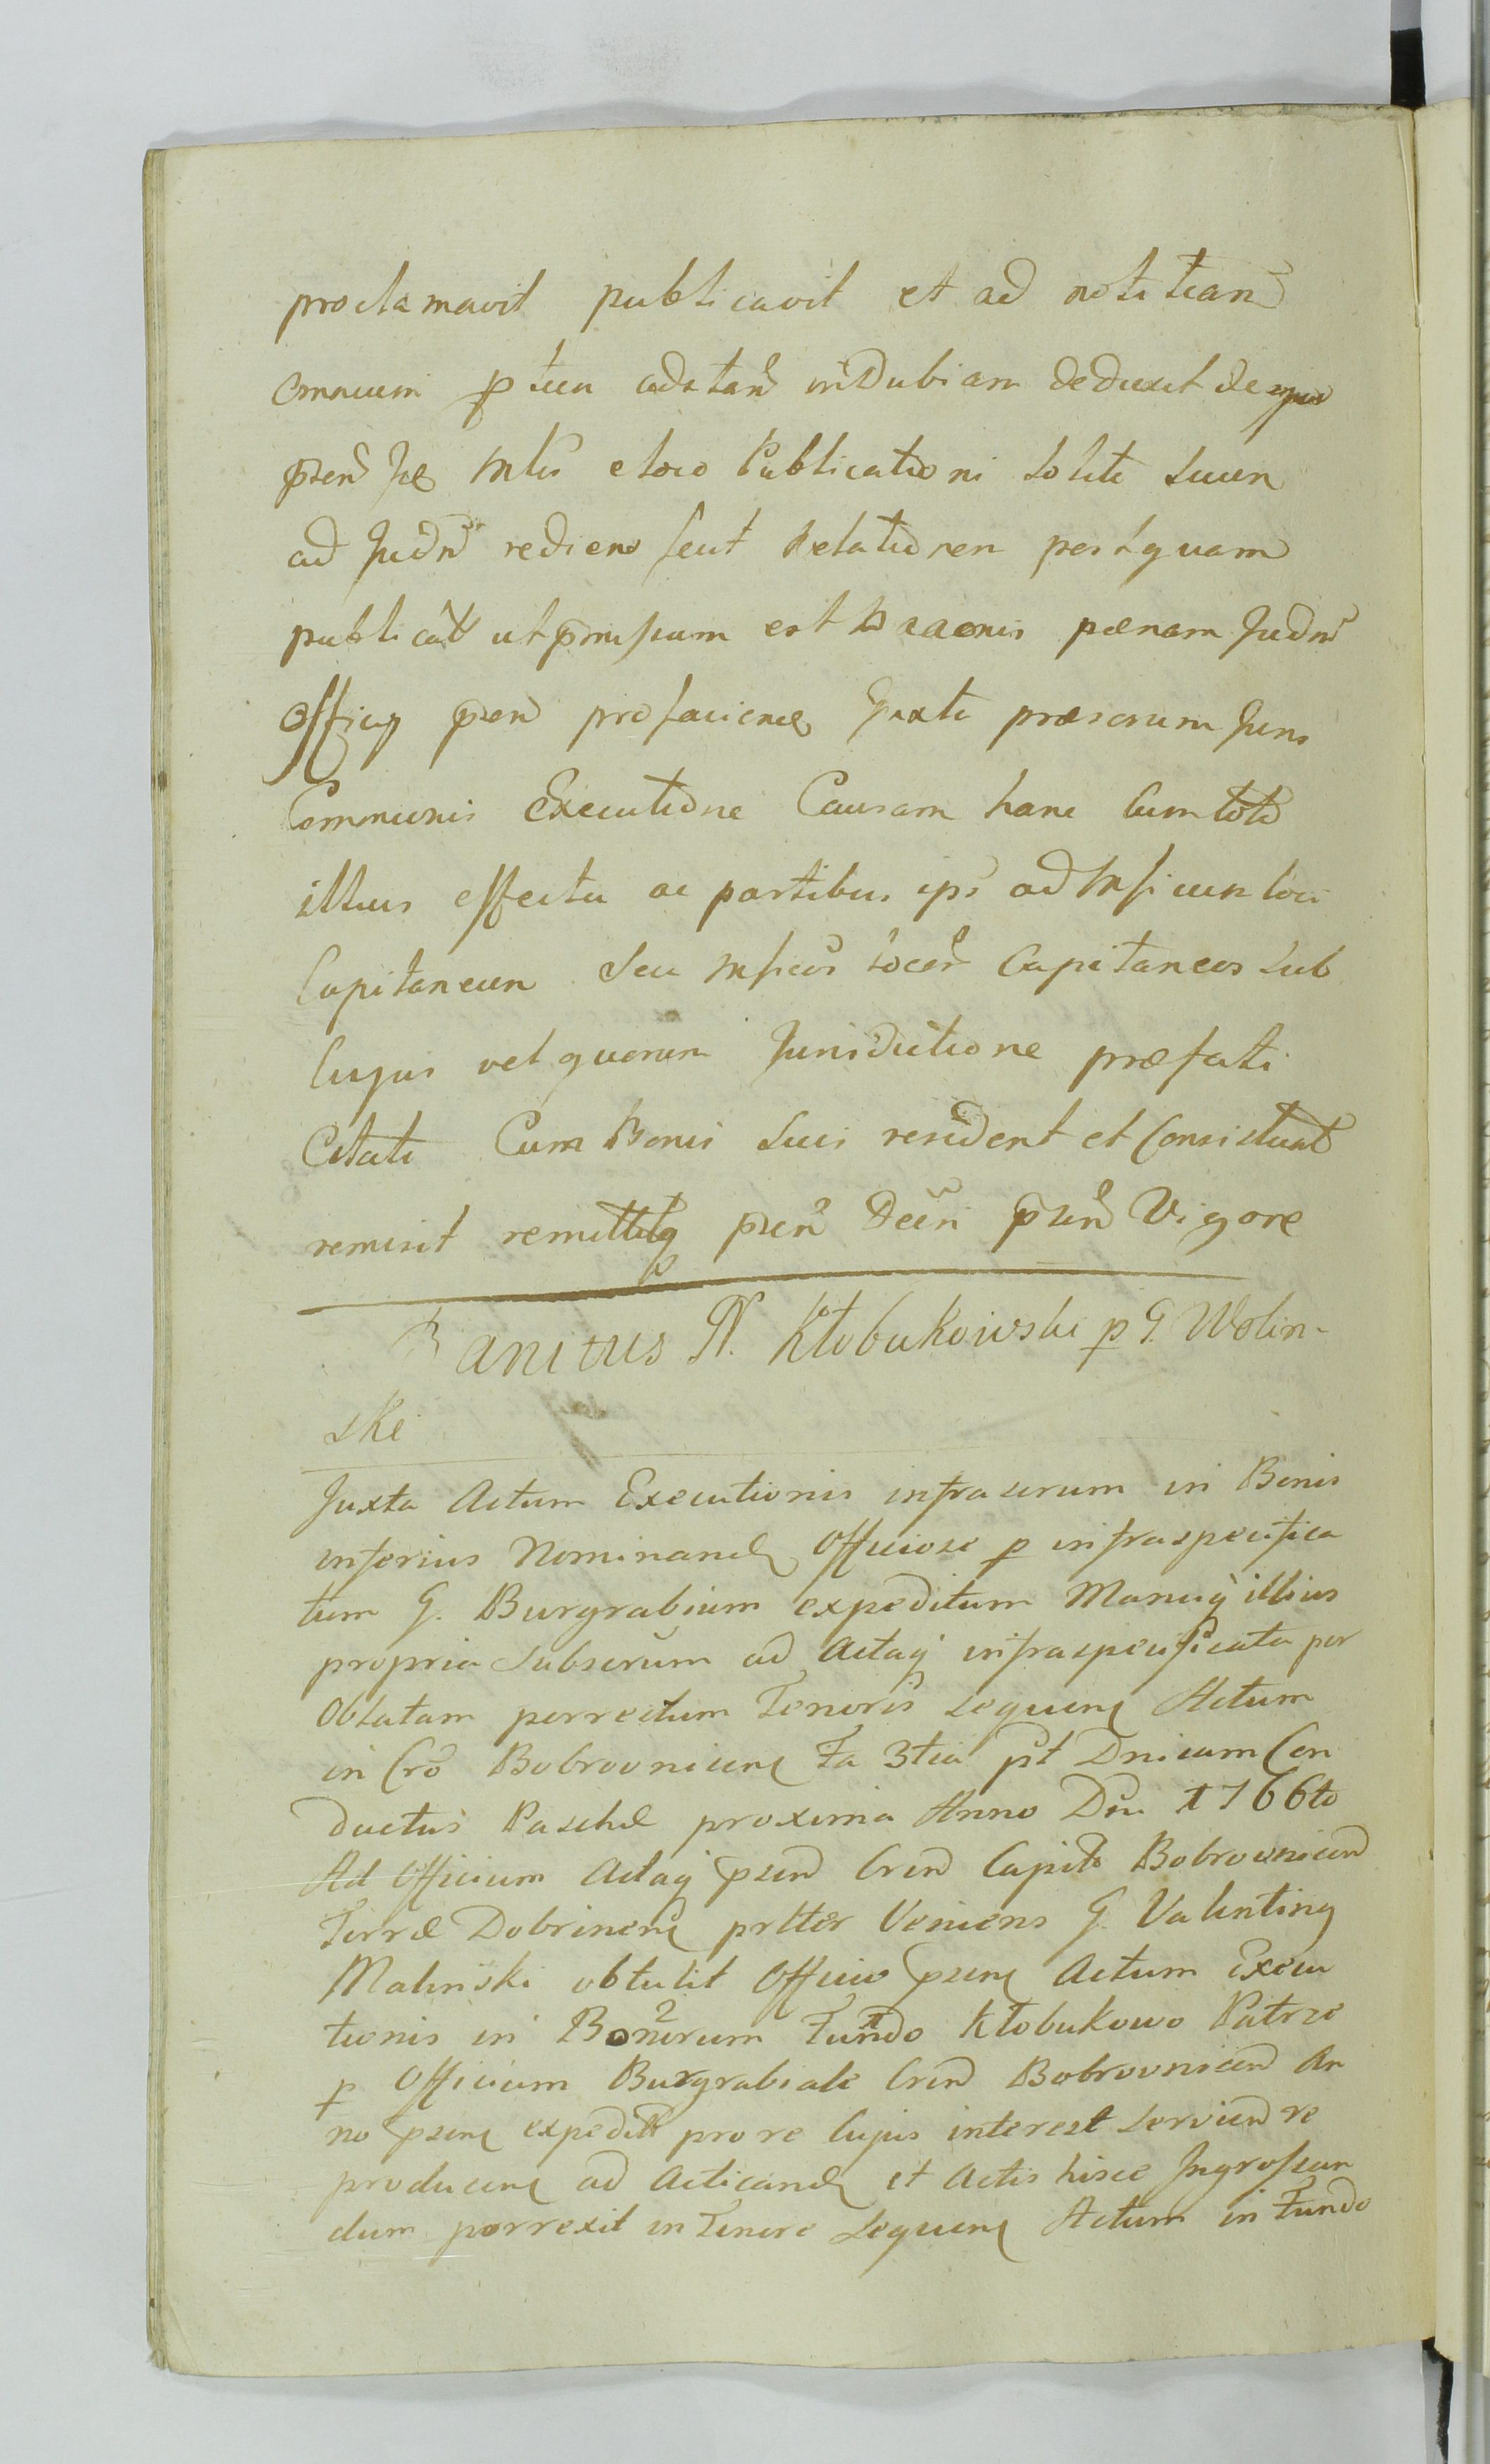 proclamavit publicavit et ad notitiam
omnium ptum adstan indubiam deduxit de quo
psen se Mtis e loco Publicationi solito suum
ad Judm rediens fecit Relationem postquam
publicat ut pmissum est Bannonis pænam Judm
Officiu psen pro faciend Juxta præscrum Juris
Communis Executione Causam hanc Cum toto
illius effectu ac partibus ips ad Mficum loci
Capitaneum seu Mficos locor Capitaneos sub
Cujus vel quorum Jurisdictione præfati
Citati Cum Bonis suis resident et Consistunt
remisit remittitq psen Decri psen Vigore
Banitus N. Kłobukowski p G. Wolin-
ski
Juxta Actum Executionis infrascrum in Bonis
inferius Nominand Officiose p infraspecifica
tum G. Burgrabium expeditum Manuq illius
propria Subscrum ad Actaq infraspecificata per
Oblatam porrectum Tenoris sequen Actum
in Cro Bobrovnicen Fa 3tia pt Dnicam Con
ductus Paschæ proxima Anno Dni 1766to
Ad Officium Actaq psen Cren Capit Bobrovnicen
Terræ Dobrinen prlter Veniens G. Valenting
Malinski obtulit Officio psen Actum Execu
tionis in Bonorum Fundo Kłobukowo Patrze
p Officium Burgrabiale Cren Bobrovnicen An
no psen expedit pro re Cujus interest servien re
producen ad Acticand et Actis hisce Ingrossan
dum porrexit in Tenore sequen Actum in Fundo